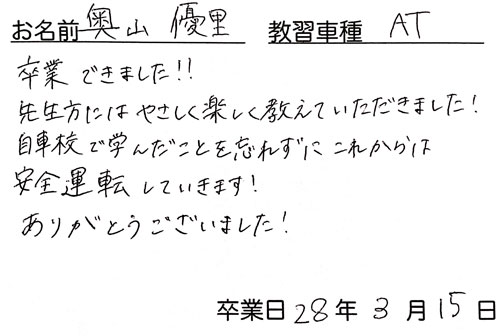 お名前 奥山 優里 教習車種 AT
卒業できました!!
先生方にはやさしく楽しく教えていただきました!
自車校で学んだことを忘れずにこれからは
安全運転していきます!
ありがとうございました!
卒業日 28年 3月 15日